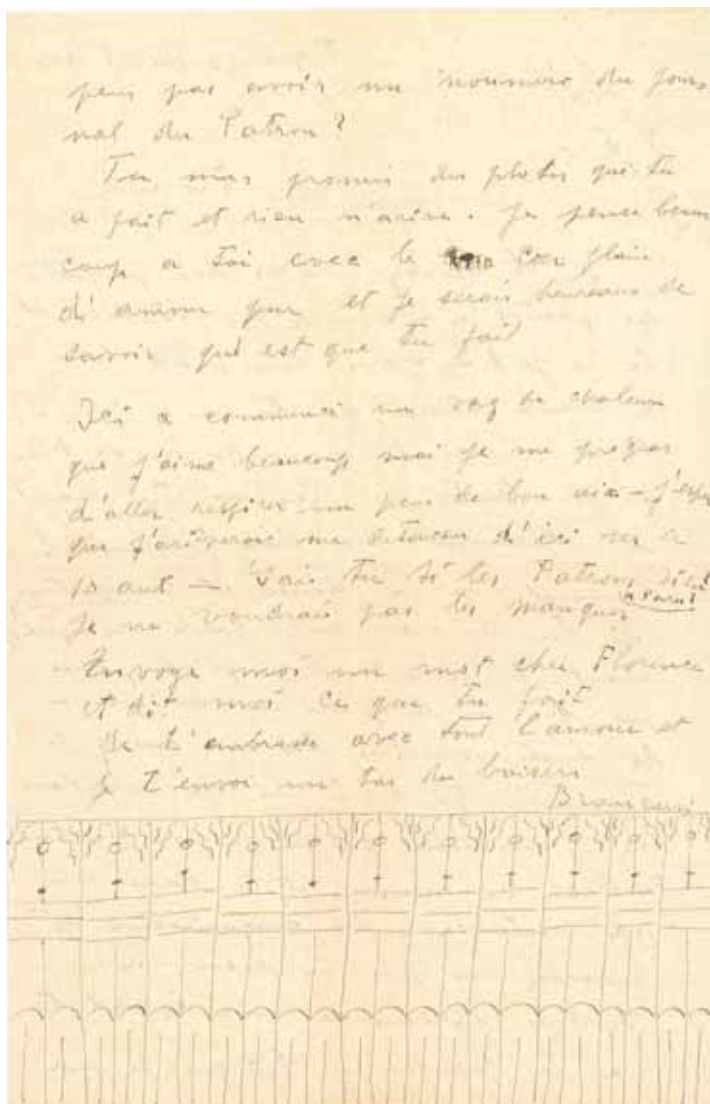 peux pas avoir un noumero du jour
nal du Patron?
Tu mas promis des photos que tu
a fait et rien n'arive. Je pense beau
coup a toi avec le cœr plain
d'amour pur et je serais heureaux de
savoir qui est que tu fait
Ici a commencé un vag de chaleur
que j'aime beaucoup mai je me prepar
d'aller respirer un peu de bon air – j'espe
que j'ariverais me d'ici
10 aut — Sais tu si les Patrons
a Paris!
Je ne voudrais pas les manquer
Envoye moi un mot cher Florence
et dit moi ce que tu fait
Je t'embrasse avec tout l'amour et
je t'envoi un tas du baisers
Brancusi